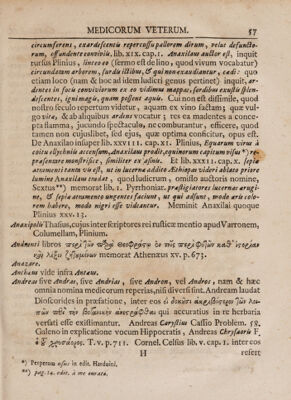 MEDICORUM VETERUM. 57
circumferent, exardescentis repercussu pallorem dirum, velut defuncto-
rum, offundente convivio, lib. XIX. cap. I. Anaxilau auctor est, inquit
rursus Plinius, linteo eo (sermo est de lino, quod vivum vocabatur)
circundatam arborem, surdis ictibus, & qui non exaudiantur, cædi: quo
etiam loco (nam & hoc ad idem ludicri genus pertinet) inquit, ar-
dentes in focis convivorum ex eo vidimus mappas, sordibus exustis splen-
descentes, igni magis, quam possent aquis. Cui non est dissimile, quod
nostro seculo repertum videtur, aquam ex vino factam; quæ vul-
go vitæ, & ab aliquibus ardens vocatur; res ea madentes a conce-
pta flamma, jucundo spectaculo, ne comburantur, efficere, quod
tamen non cujuslibet, sed ejus, quæ optima conficitur, opus est.
De Anaxilao insuper lib. XXVIII. cap. XI. Plinius, Equarum virus à
coitu ellychniis accensum, Anaxilaus prodit, equinorum capitum visu *) re-
præsentare monstrifice, similiter ex asinis. Et lib. XXXII. cap. X. sepiæ
atramenti tanta vis est, ut in lucerna addito Æthiopas videri ablato priore
lumine Anaxilaus tradat, quod ludicrum, omisso auctoris nomine,
Sextus **) memorat lib. I. Pyrrhoniar. præstigiatores lucernas ærugi-
ne, & sepiæ atramento ungentes faciunt, ut qui adsunt, modo æris colo-
rem habere, modo nigri esse videantur. Meminit Anaxilai quoque
Plinius XXV. 13.
Anaxipolis Thasius, cujus inter scriptores rei rusticæ mentio apud Varronem,
Columellam, Plinium.
memorat Athenæus XV. p. 673.
Anazare.
Anthæus vide infra Antæus.
Andreas sive Andras, sive Andrias, sive Andron, vel Andros, nam & hæc
omnia nomina medicorum reperias, nisi diversi sint. Andream laudat
Dioscorides in præfatione, inter eos
qui accuratius in re herbaria
versati esse existimantur. Andreas Carystius Cassio Problem. 58.
Galeno in explicatione vocum Hippocratis, Andreas Chrysaoris F.
T. V. p. 711. Cornel. Celsus lib. V. cap. I. inter eos
H refert
*) Perperam usus in edit. Harduini.
**) pag. 12. edit. à me curatæ.